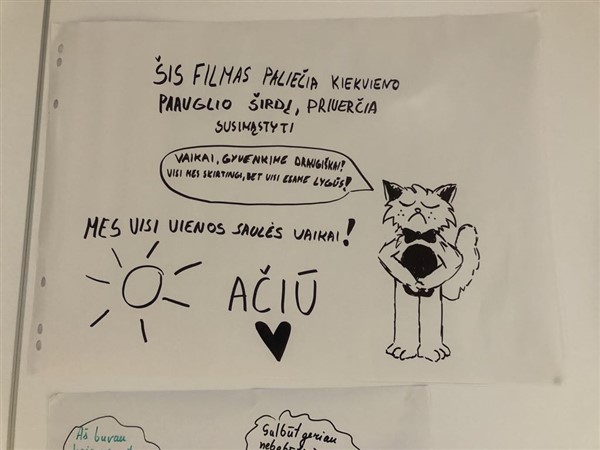 ŠIS FILMAS PALIEČIA KIEKVIENO
PAAUGLIO ŠIRDĮ, PRIVERČIA
SUSIMĄSTYTI
VAIKAI, GYVENKIME DRAUGIŠKAI!
VISI MES SKIRTINGI, BET VISI ESAME LYGŪS!
MES VISI VIENOS SAULĖS VAIKAI!
AČIŪ
Aš buvau
Galbūt geriau